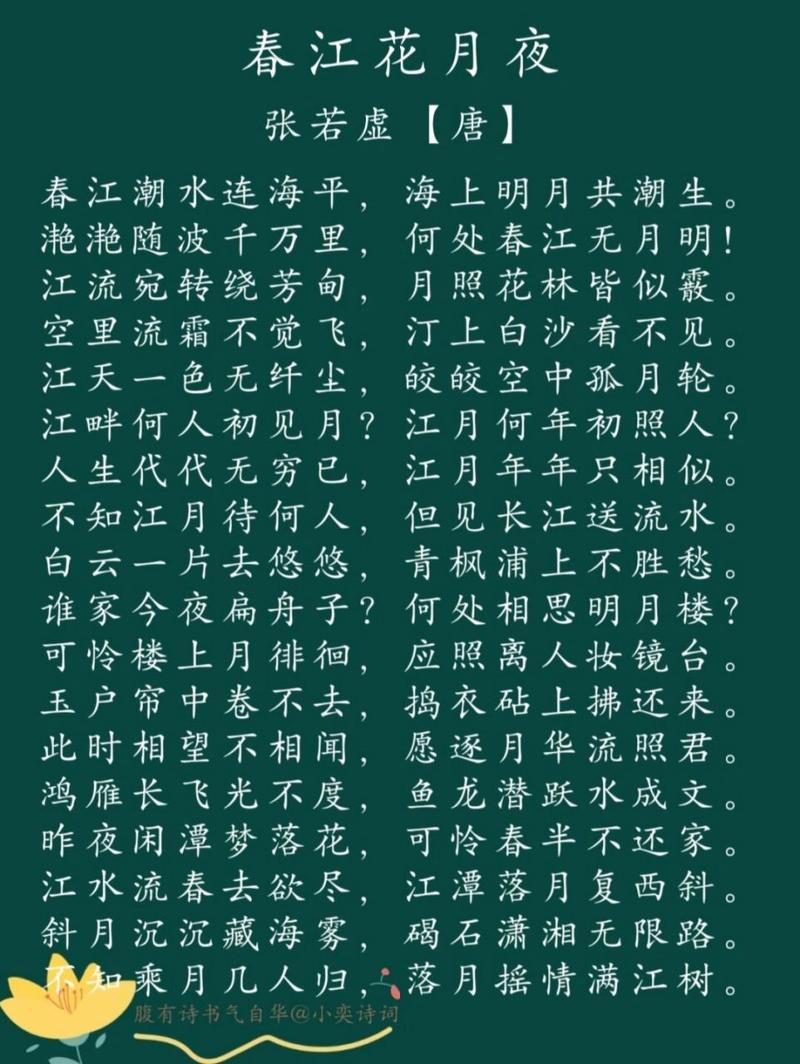 春江花月夜
张若虚【唐】
春江潮水连海平，海上明月共潮生。
滟滟随波千万里，何处春江无月明！
江流宛转绕芳甸，月照花林皆似霰。
空里流霜不觉飞，汀上白沙看不见。
江天一色无纤尘，皎皎空中孤月轮。
江畔何人初见月？江月何年初照人？
人生代代无穷已，江月年年只相似。
不知江月待何人，但见长江送流水。
白云一片去悠悠，青枫浦上不胜愁。
谁家今夜扁舟子？何处相思明月楼？
可怜楼上月徘徊，应照离人妆镜台。
玉户帘中卷不去，捣衣砧上拂还来。
此时相望不相闻，愿逐月华流照君。
鸿雁长飞光不度，鱼龙潜跃水成文。
昨夜闲潭梦落花，可怜春半不还家。
江水流春去欲尽，江潭落月复西斜。
斜月沉沉藏海雾，碣石潇湘无限路。
不知乘月几人归，落月摇情满江树。
腹有诗书气自华@小奕诗词